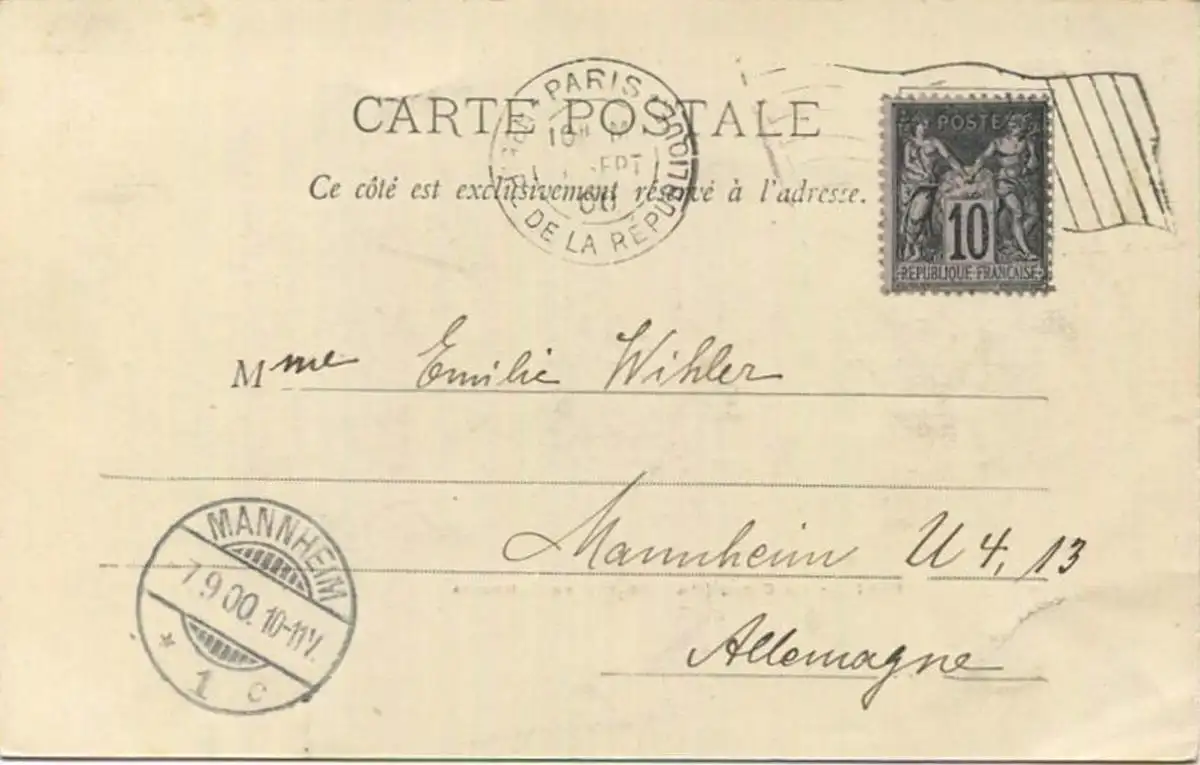 CARTE POSTALE
PARIS
DE LA RÉPUBLIQUE
10H
SEPT
00
Ce côté est exclusivement réservé à l'adresse.
POSTES
10
REPUBLIQUE FRANÇAISE
Mme Emilie Wihler
Mannheim U 4, 13
Allemagne
MANNHEIM
7.9.00.10-11V.
* 1 c